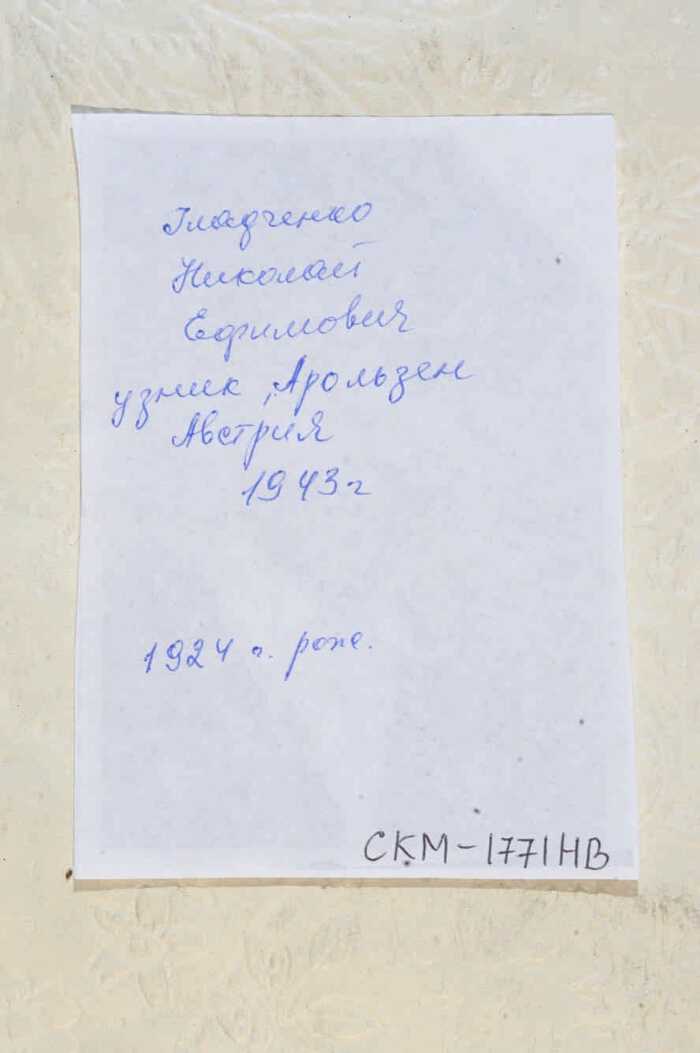 Гладченко
Николай
Ефимович
узник, Арользен
Австрия
1943 г
1924 г. рож.
СКМ-1771НВ